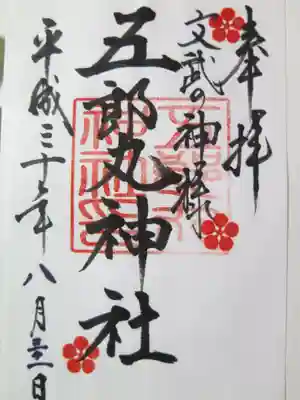 奉拝
文武の神様
五郎丸神社
平成三十年八月
日